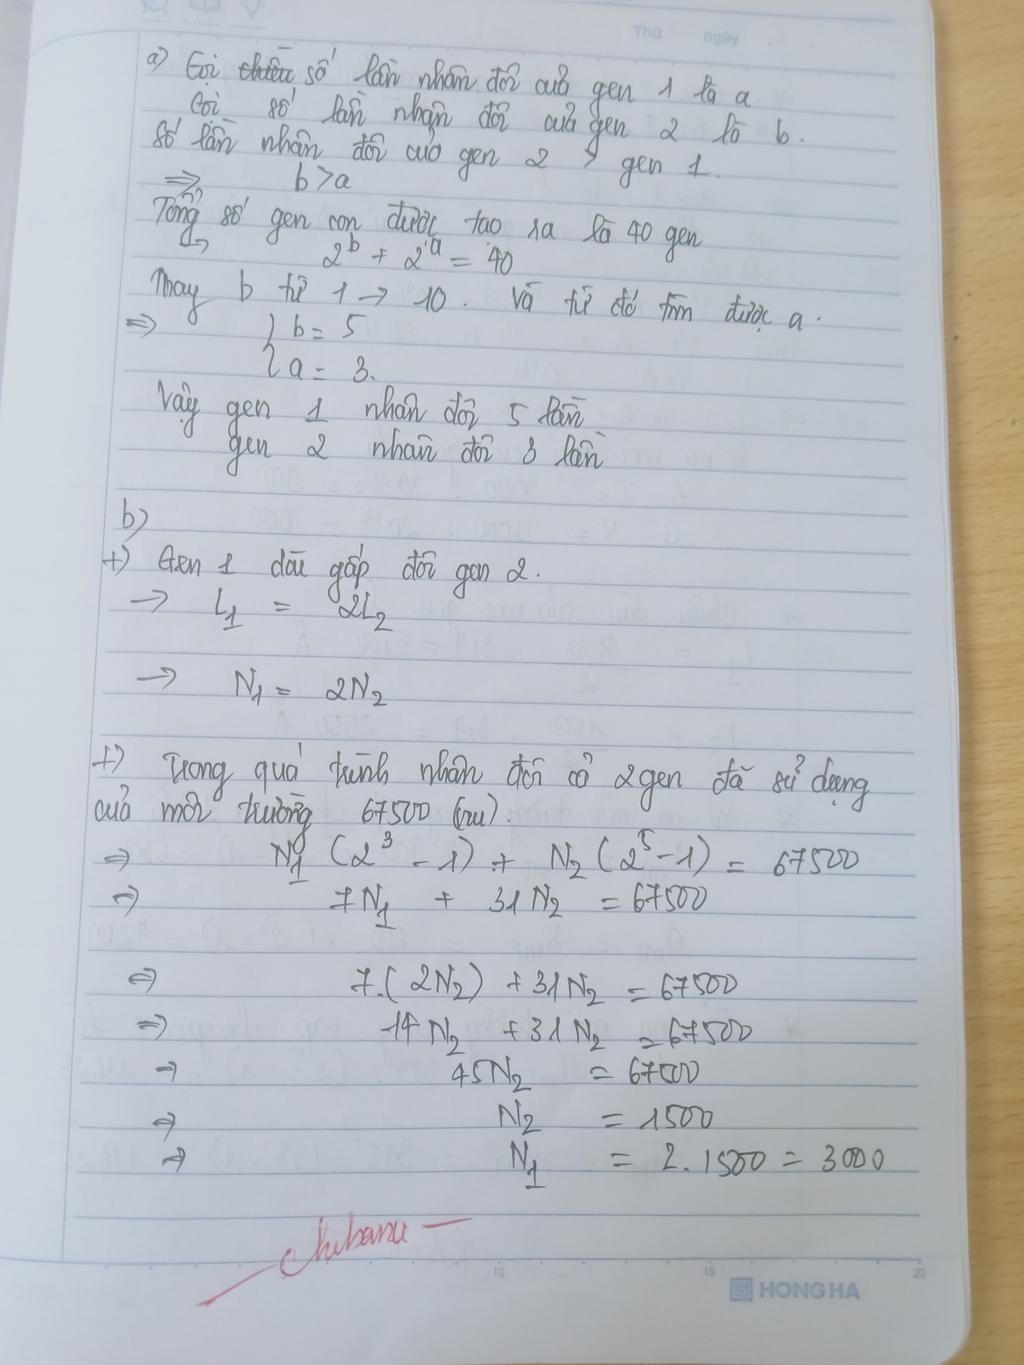 Thứ ngày
a) Gọi số lần nhân đôi của gen 1 là a
Gọi số lần nhân đôi của gen 2 là b.
Số lần nhân đôi của gen 2 > gen 1.
=> b > a
Tổng số gen con được tạo ra là 40 gen
↳ 2^b + 2^a = 40
Thay b từ 1 -> 10. Và từ đó tìm được a.
=> { b = 5
{ a = 3.
Vậy gen 1 nhân đôi 5 lần
gen 2 nhân đôi 3 lần
b)
+) Gen 1 dài gấp đôi gen 2.
-> L1 = 2L2
-> N1 = 2N2
+) Trong quá trình nhân đôi cả 2 gen đã sử dụng
của môi trường 67500 (nu).
=> N1 (2^3 - 1) + N2 (2^5 - 1) = 67500
=> 7N1 + 31N2 = 67500
=> 7.(2N2) + 31N2 = 67500
=> 14N2 + 31N2 = 67500
=> 45N2 = 67500
=> N2 = 1500
=> N1 = 2.1500 = 3000
Chibanu
10 15 20
HONG HA